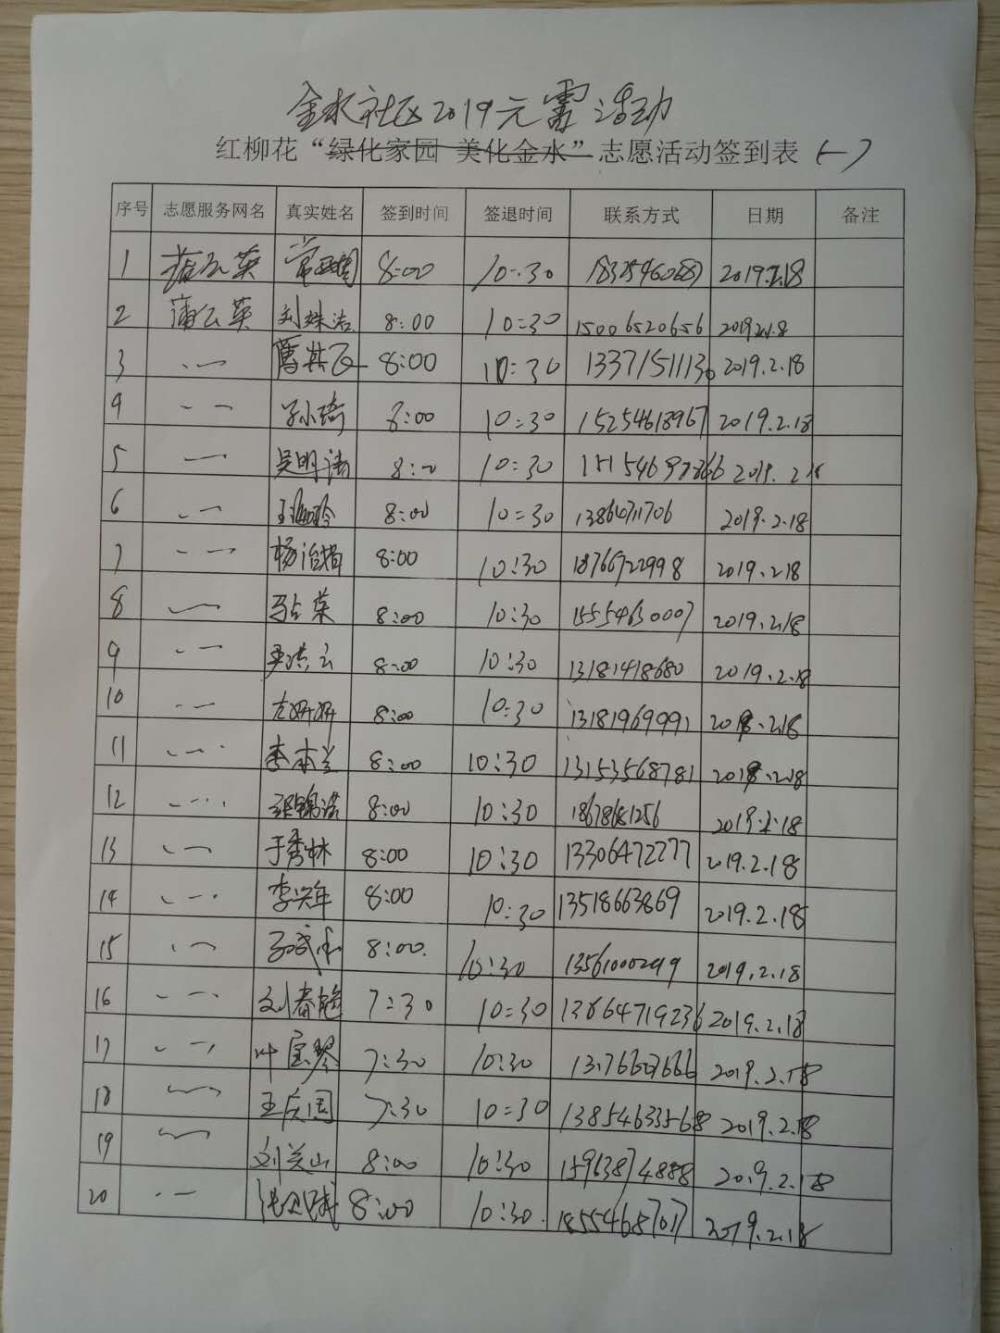 金水社区2019元宵活动
红柳花“绿化家园 美化金水”志愿活动签到表(一)
序号 志愿服务网名 真实姓名 签到时间 签退时间 联系方式 日期 备注
1 8:00 10:30 2019.2.18
2 蒲公英 刘姝洁 8:00 10:30 15006520656 2019.2.18
3 〃 8:00 10:30 13371511136 2019.2.18
4 〃 孙小琦 8:00 10:30 15254618967 2019.2.18
5 〃 吴明涛 8:00 10:30 2019.2.18
6 〃 8:00 10:30 2019.2.18
7 〃 杨治梅 8:00 10:30 18766722998 2019.2.18
8 〃 马占荣 8:00 10:30 15554630007 2019.2.18
9 〃 8:00 10:30 13181418680 2019.2.18
10 〃 8:00 10:30 13181969991 2019.2.18
11 〃 李本兰 8:00 10:30 13153568781 2019.2.18
12 〃 8:00 10:30 18678681256 2019.2.18
13 〃 于秀林 8:00 10:30 13306472277 2019.2.18
14 〃 李兴年 8:00 10:30 13518663869 2019.2.18
15 〃 8:00 10:30 2019.2.18
16 〃 刘春艳 7:30 10:30 13864719236 2019.2.18
17 〃 叶宝琴 7:30 10:30 13176607666 2019.2.18
18 〃 王庆国 7:30 10:30 13854633568 2019.2.18
19 〃 刘关山 8:00 10:30 15963874888 2019.2.18
20 〃 8:00 10:30 18554687077 2019.2.18